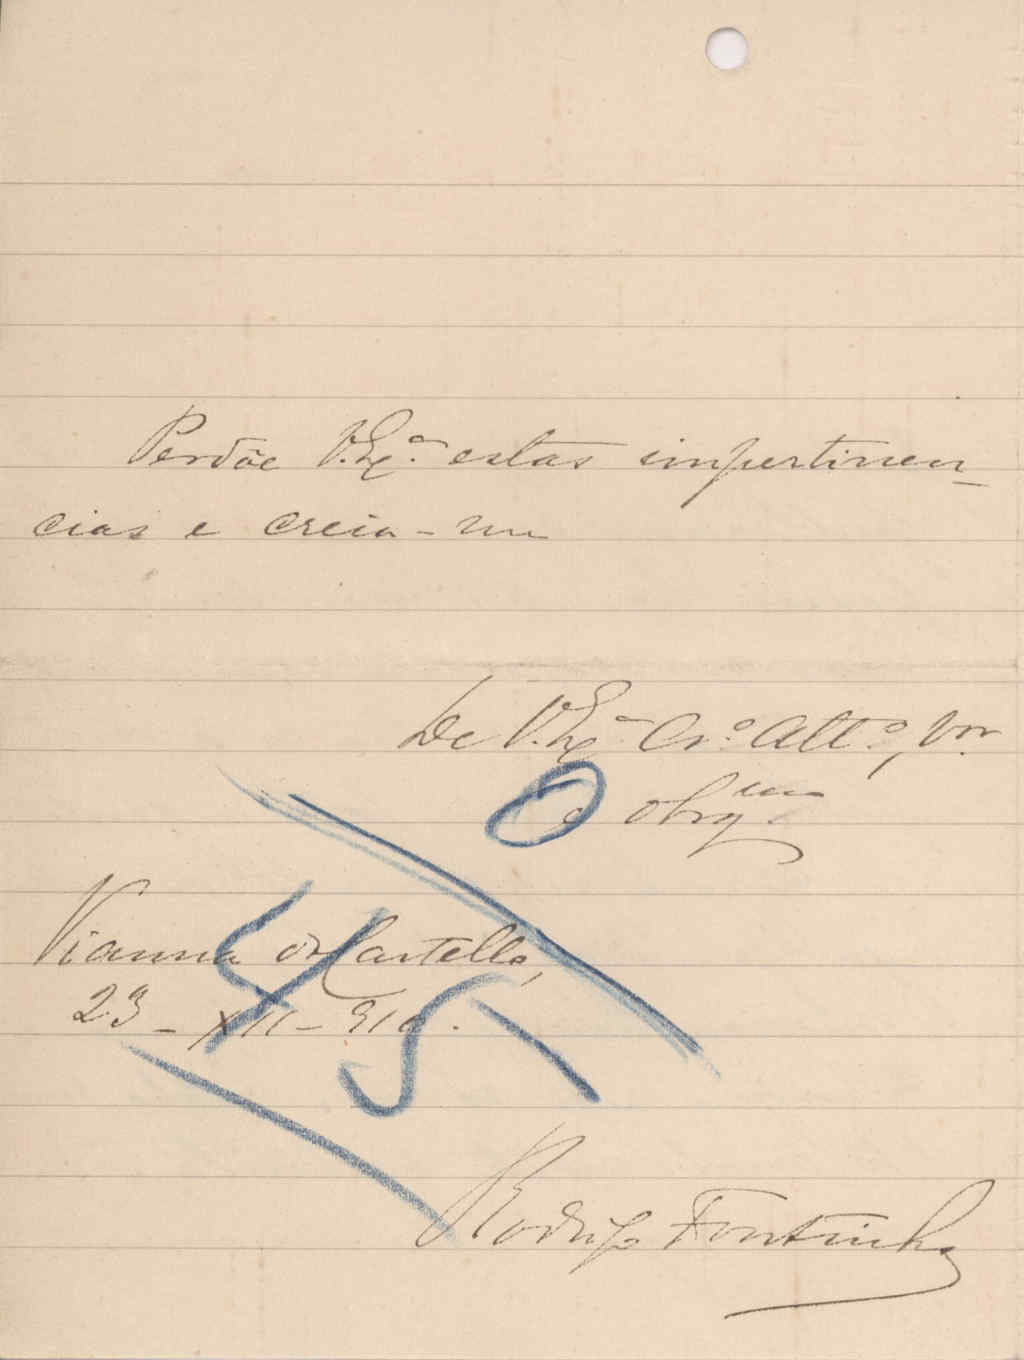 Perdôe V. Ex.ª estas impertinen-
cias e creia-me
De V. Ex.ª Cr.º Att.º, Vor.
e obrg.mo
Vianna do Castello,
23-XII-910.
45
Rodrigo Fontinha